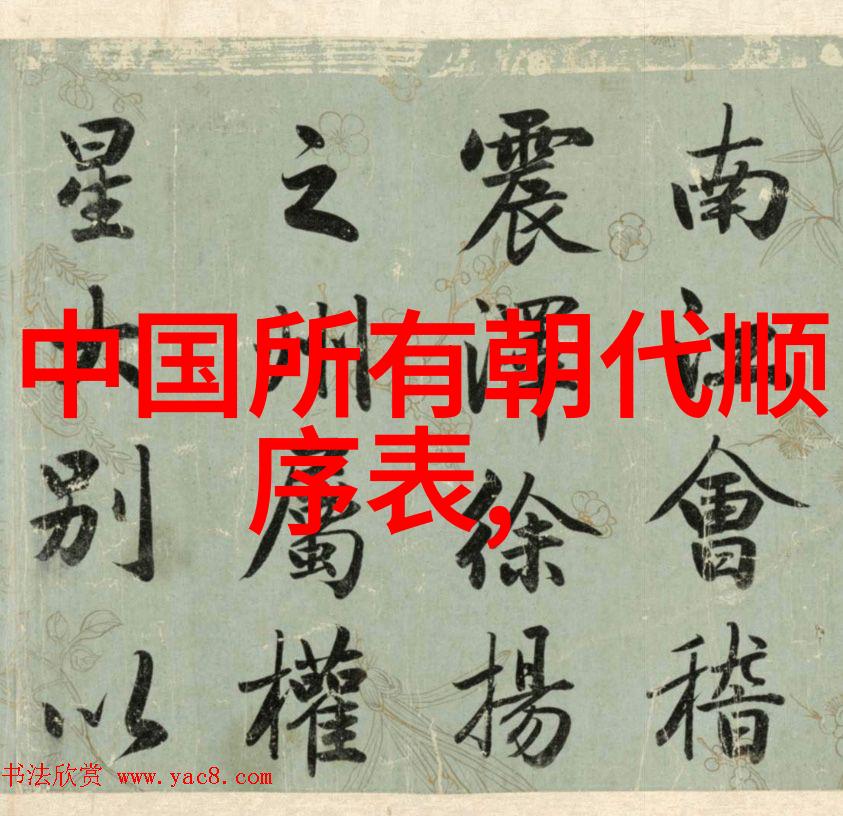 中国所有朝代顺
序表,
南江會稽
震澤徐揚
之州屬權
星别以
书法欣赏 www.yac8.com